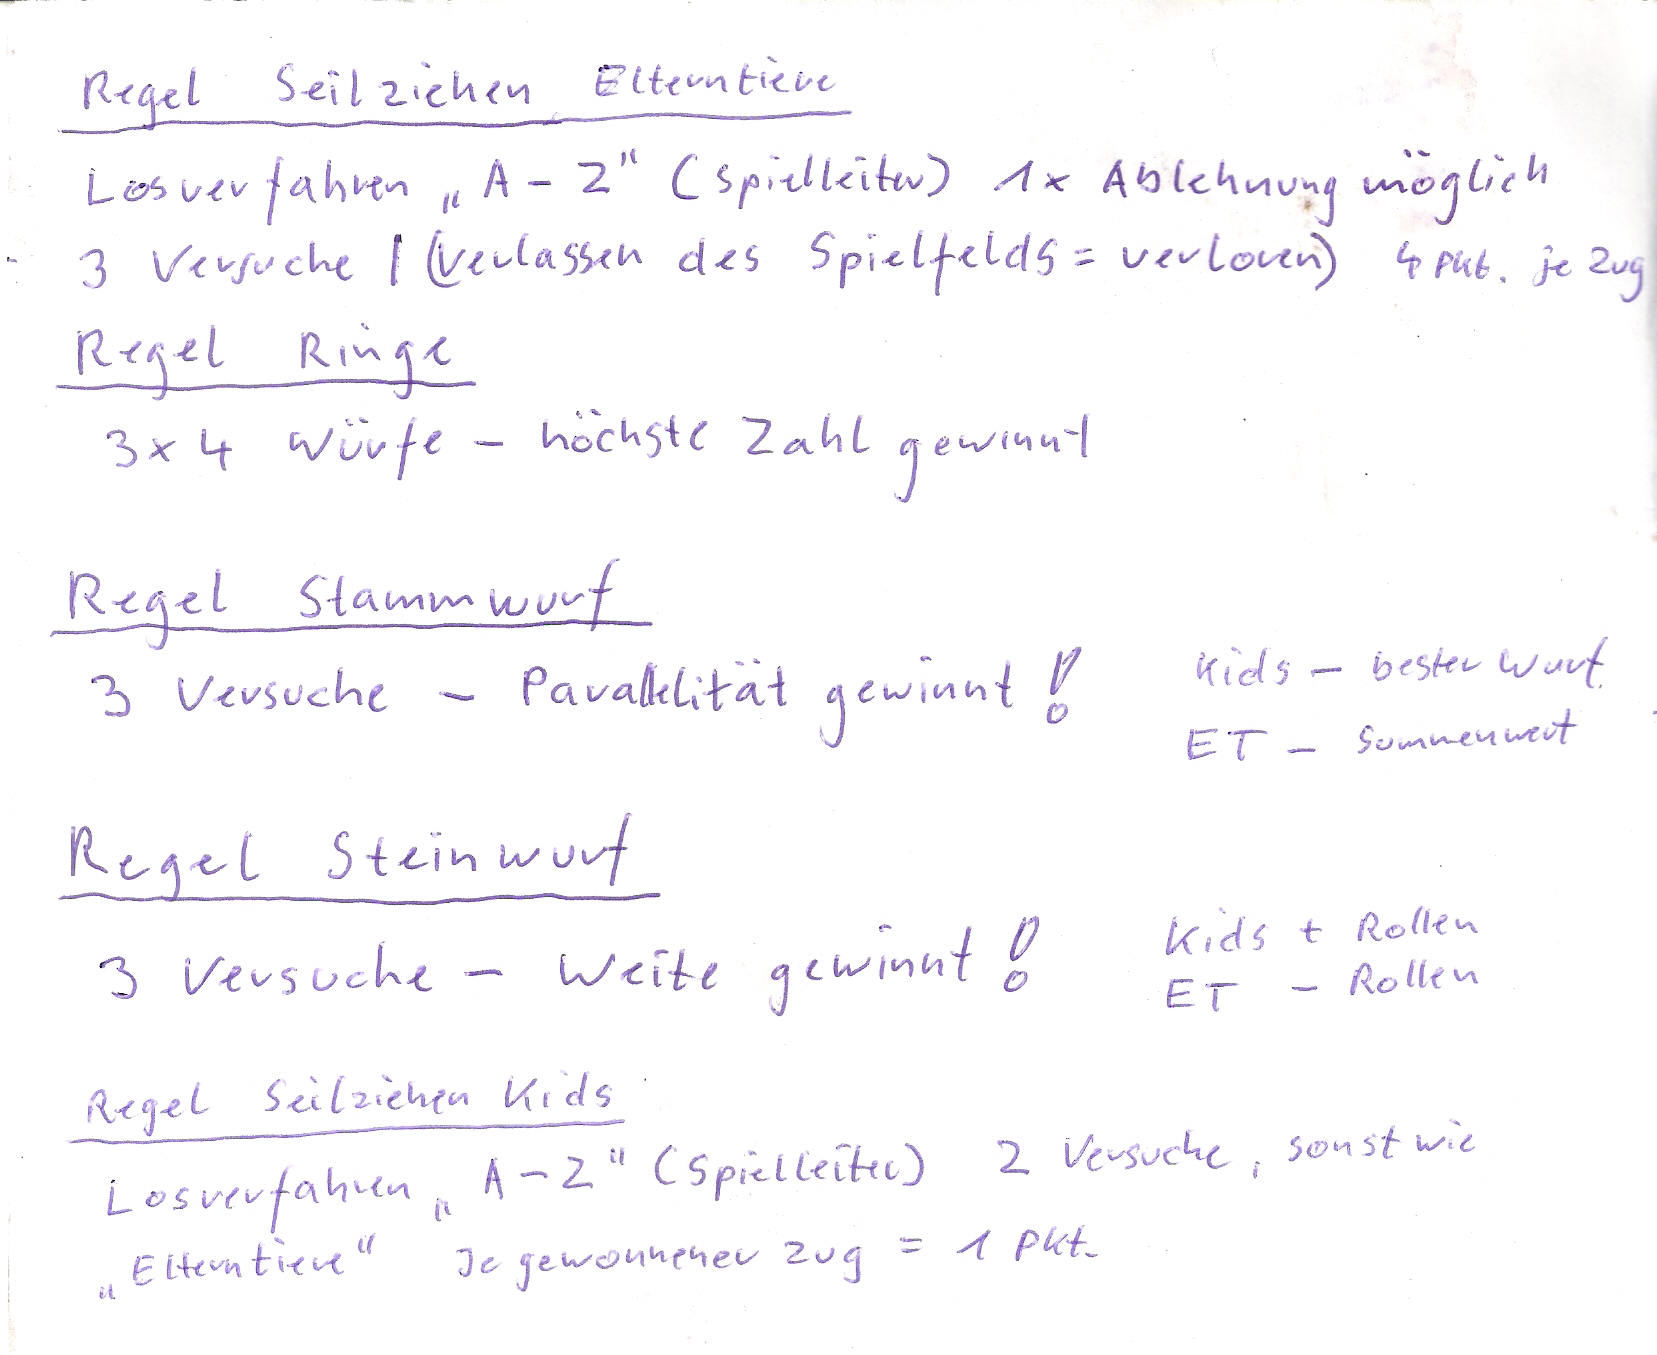 Regel Seilziehen Elterntiere
Losverfahren „A – Z" (Spielleiter) 1x Ablehnung möglich
3 Versuche | (verlassen des Spielfelds = verloren) 4 Pkt. je Zug
Regel Ringe
3 x 4 Würfe – höchste Zahl gewinnt
Regel Stammwurf
3 Versuche – Parallelität gewinnt!
Kids – bester Wurf.
ET – Summenwert
Regel Steinwurf
3 Versuche – Weite gewinnt!
Kids + Rollen
ET – Rollen
Regel Seilziehen Kids
Losverfahren „A – Z" (Spielleiter) 2 Versuche, sonst wie
„Elterntiere" Je gewonnener Zug = 1 Pkt.